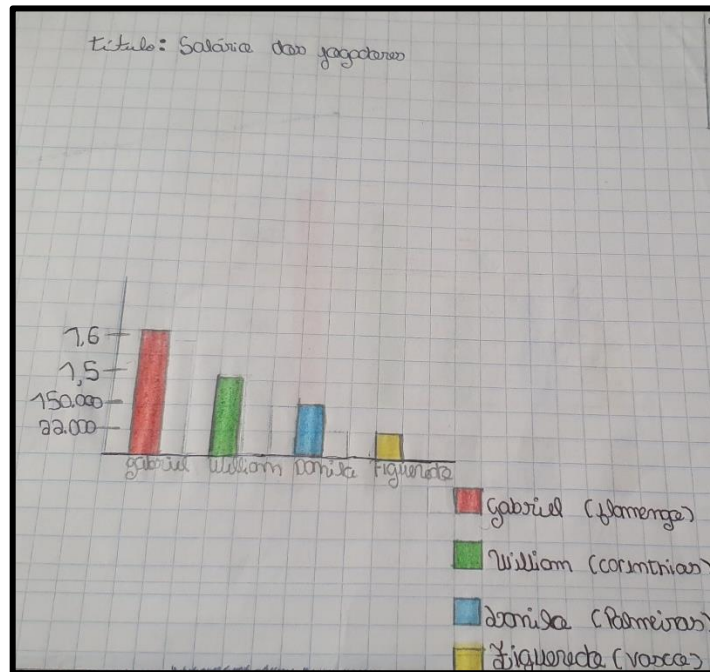 titulo: Salárice dos jogadores
1,6
1,5
150.000
22.000
gabriel William Danilo Figueredo
gabriel (flamengo)
William (corinthias)
Danilo (Palmeiras)
Figueredo (vasco)